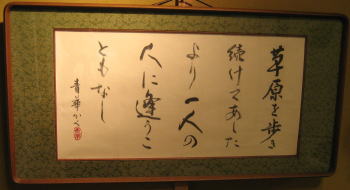 草原を歩き
続けてあした
より一人の
人に逢うこ
ともなし